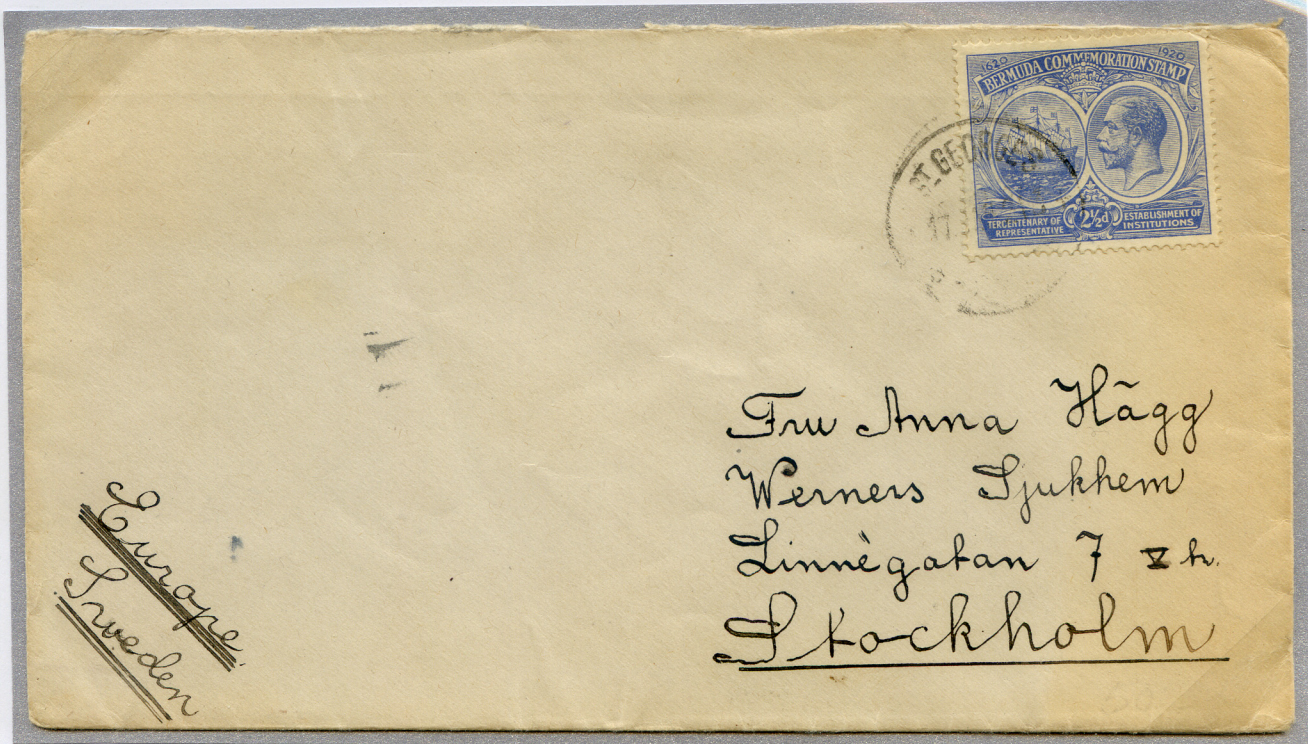 1620 1920
BERMUDA COMMEMORATION STAMP
TERCENTENARY OF REPRESENTATIVE
2½d
ESTABLISHMENT OF INSTITUTIONS
ST. GEORGES
17
Fru Anna Hägg
Werners Sjukhem
Linnégatan 7 V tr.
Stockholm
Europe.
Sweden